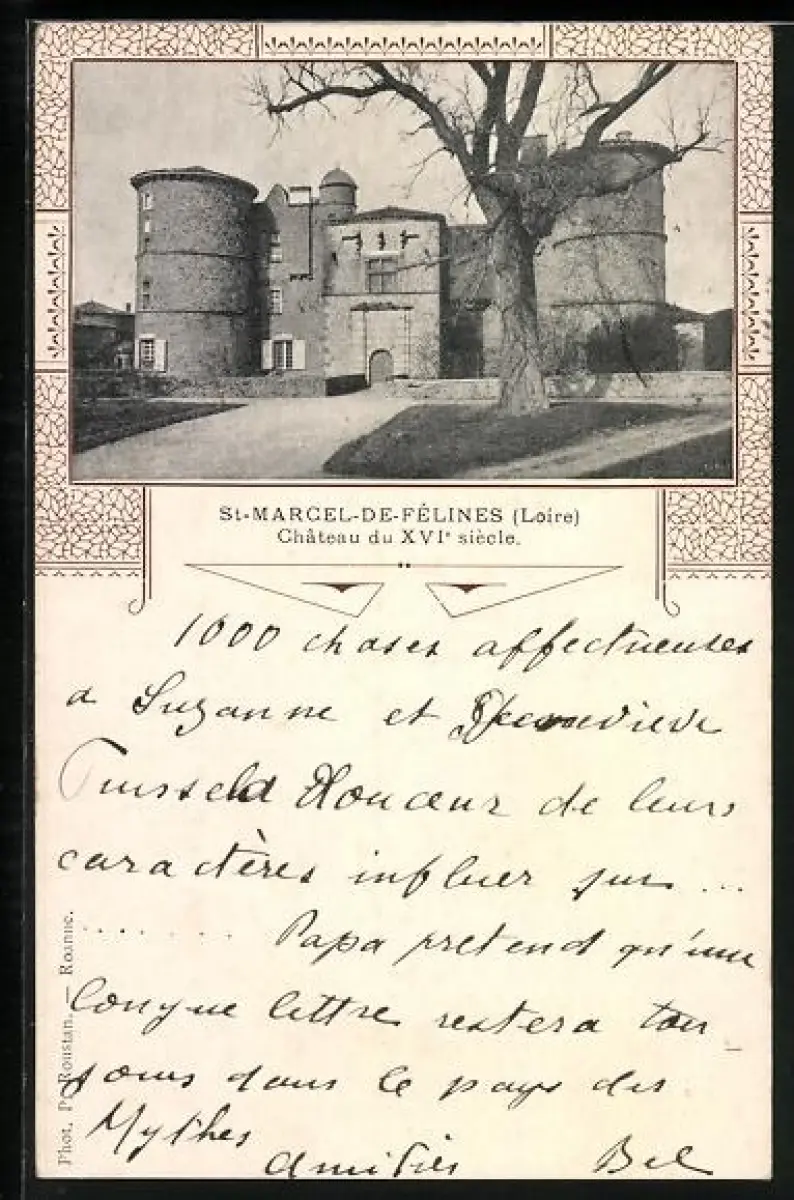 St-MARCEL-DE-FÉLINES (Loire)
Château du XVIe siècle.
1000 choses affectueuses
a Suzanne et Genevieve
douceur de leurs
caractères influer sur ...
........ Papa pretend qu'une
longue lettre restera tou
jours dans le pays des
Mythes
Amitiés Bel
Phot. P. Roustan. — Roanne.